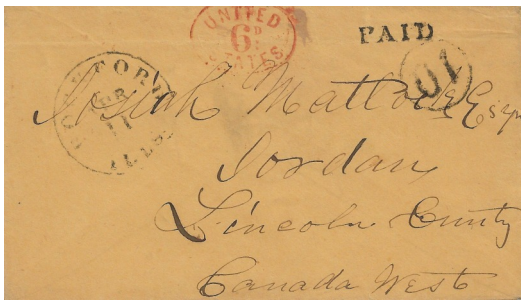 UNITED
6D
STATES
PAID
10
11
Josiah Matlock Esqr
Jordan
Lincoln County
Canada West